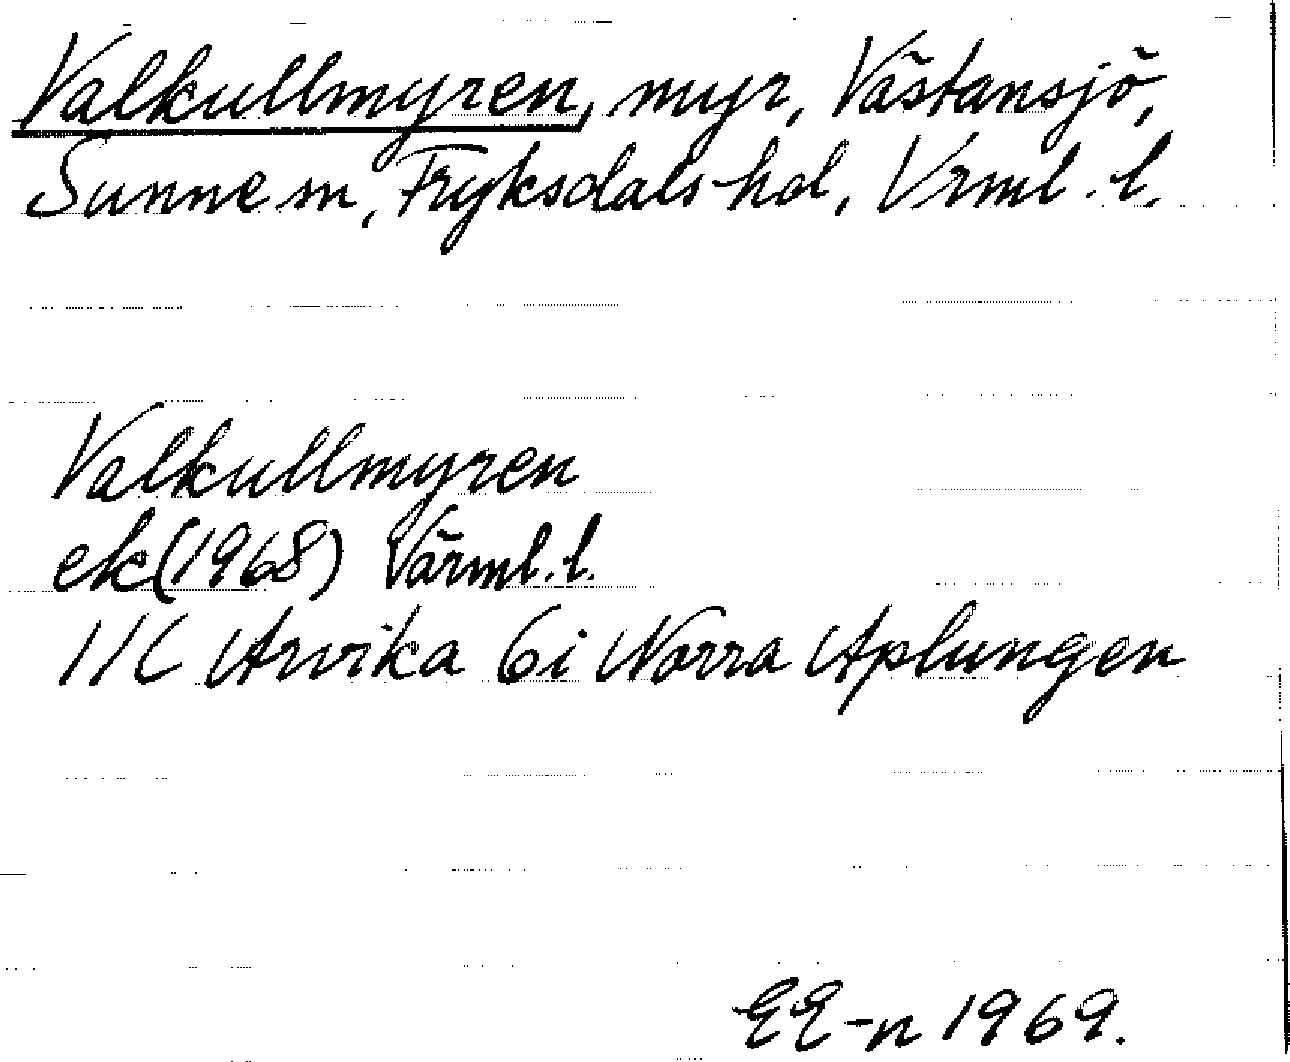 Valkullmyren, myr, Västansjö,
Sunne sn, Fryksdals hd, Vrml. l.
Valkullmyren
ek (1968) Värml. l.
11C Arvika 6i Norra Aplungen
EE-n 1969.